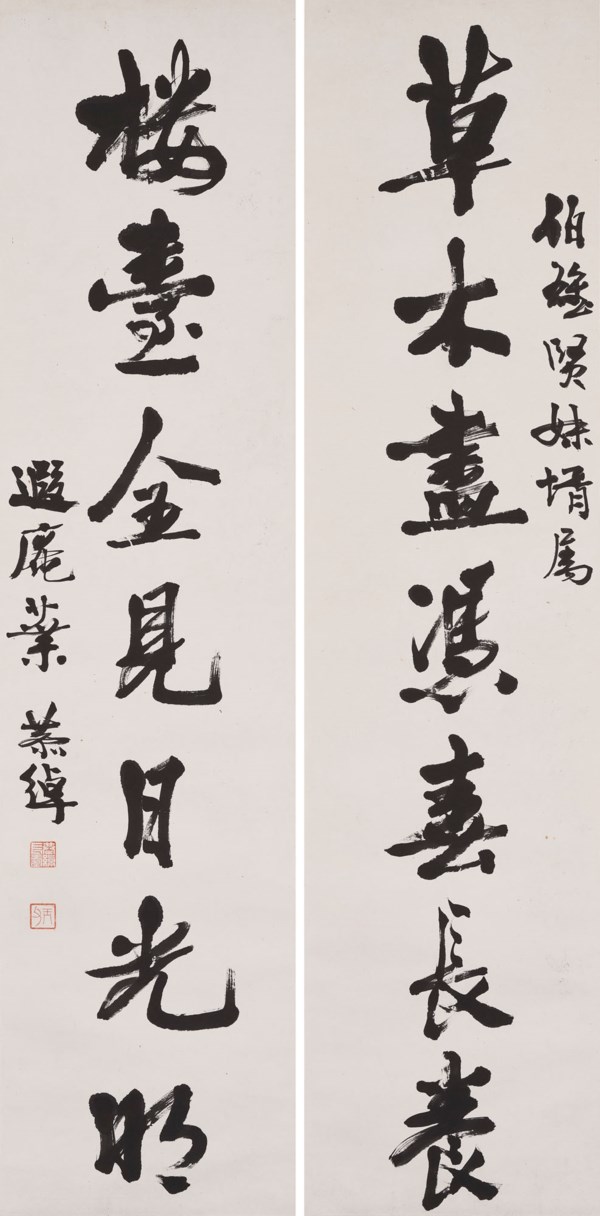 伯賢妹婿属
草木盡憑春長養
楼臺全見日光明
遐庵葉恭綽